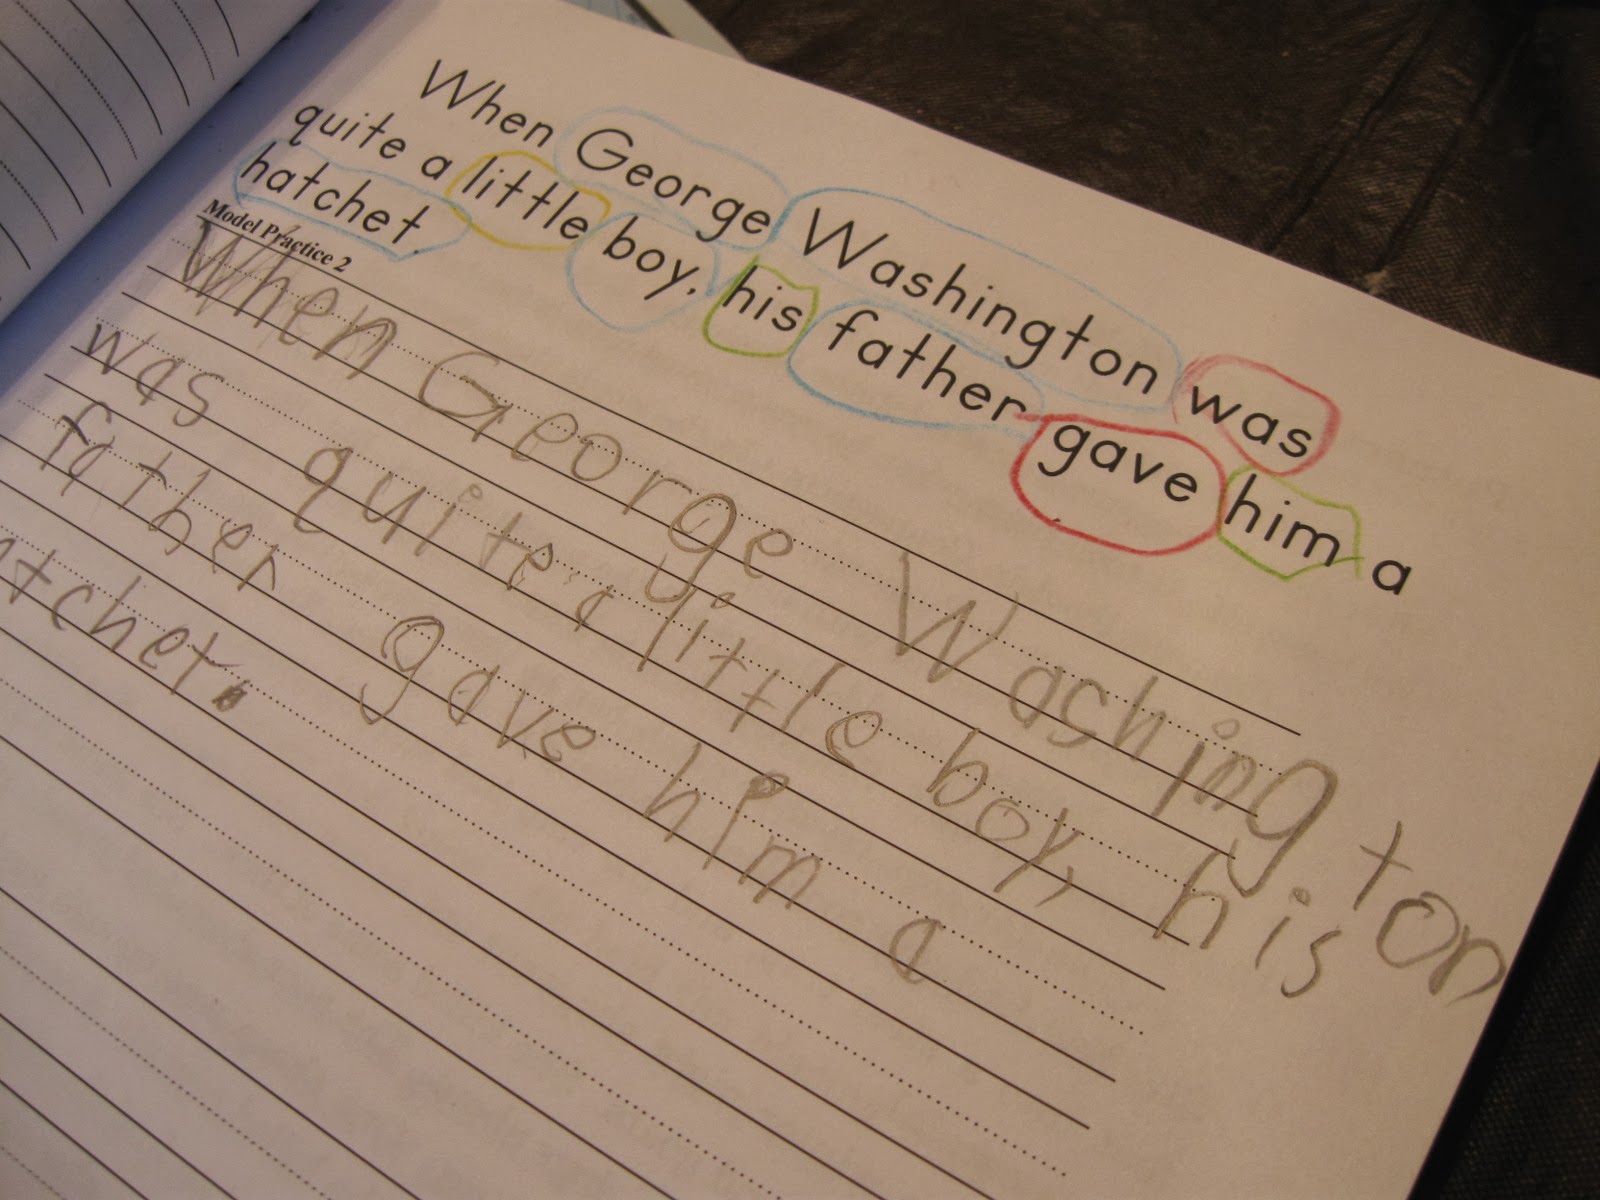 When George Washington was
quite a little boy, his father gave him a
hatchet.
Model Practice 2
When George Washington
was quite a little boy, his
father gave him a
atchet.